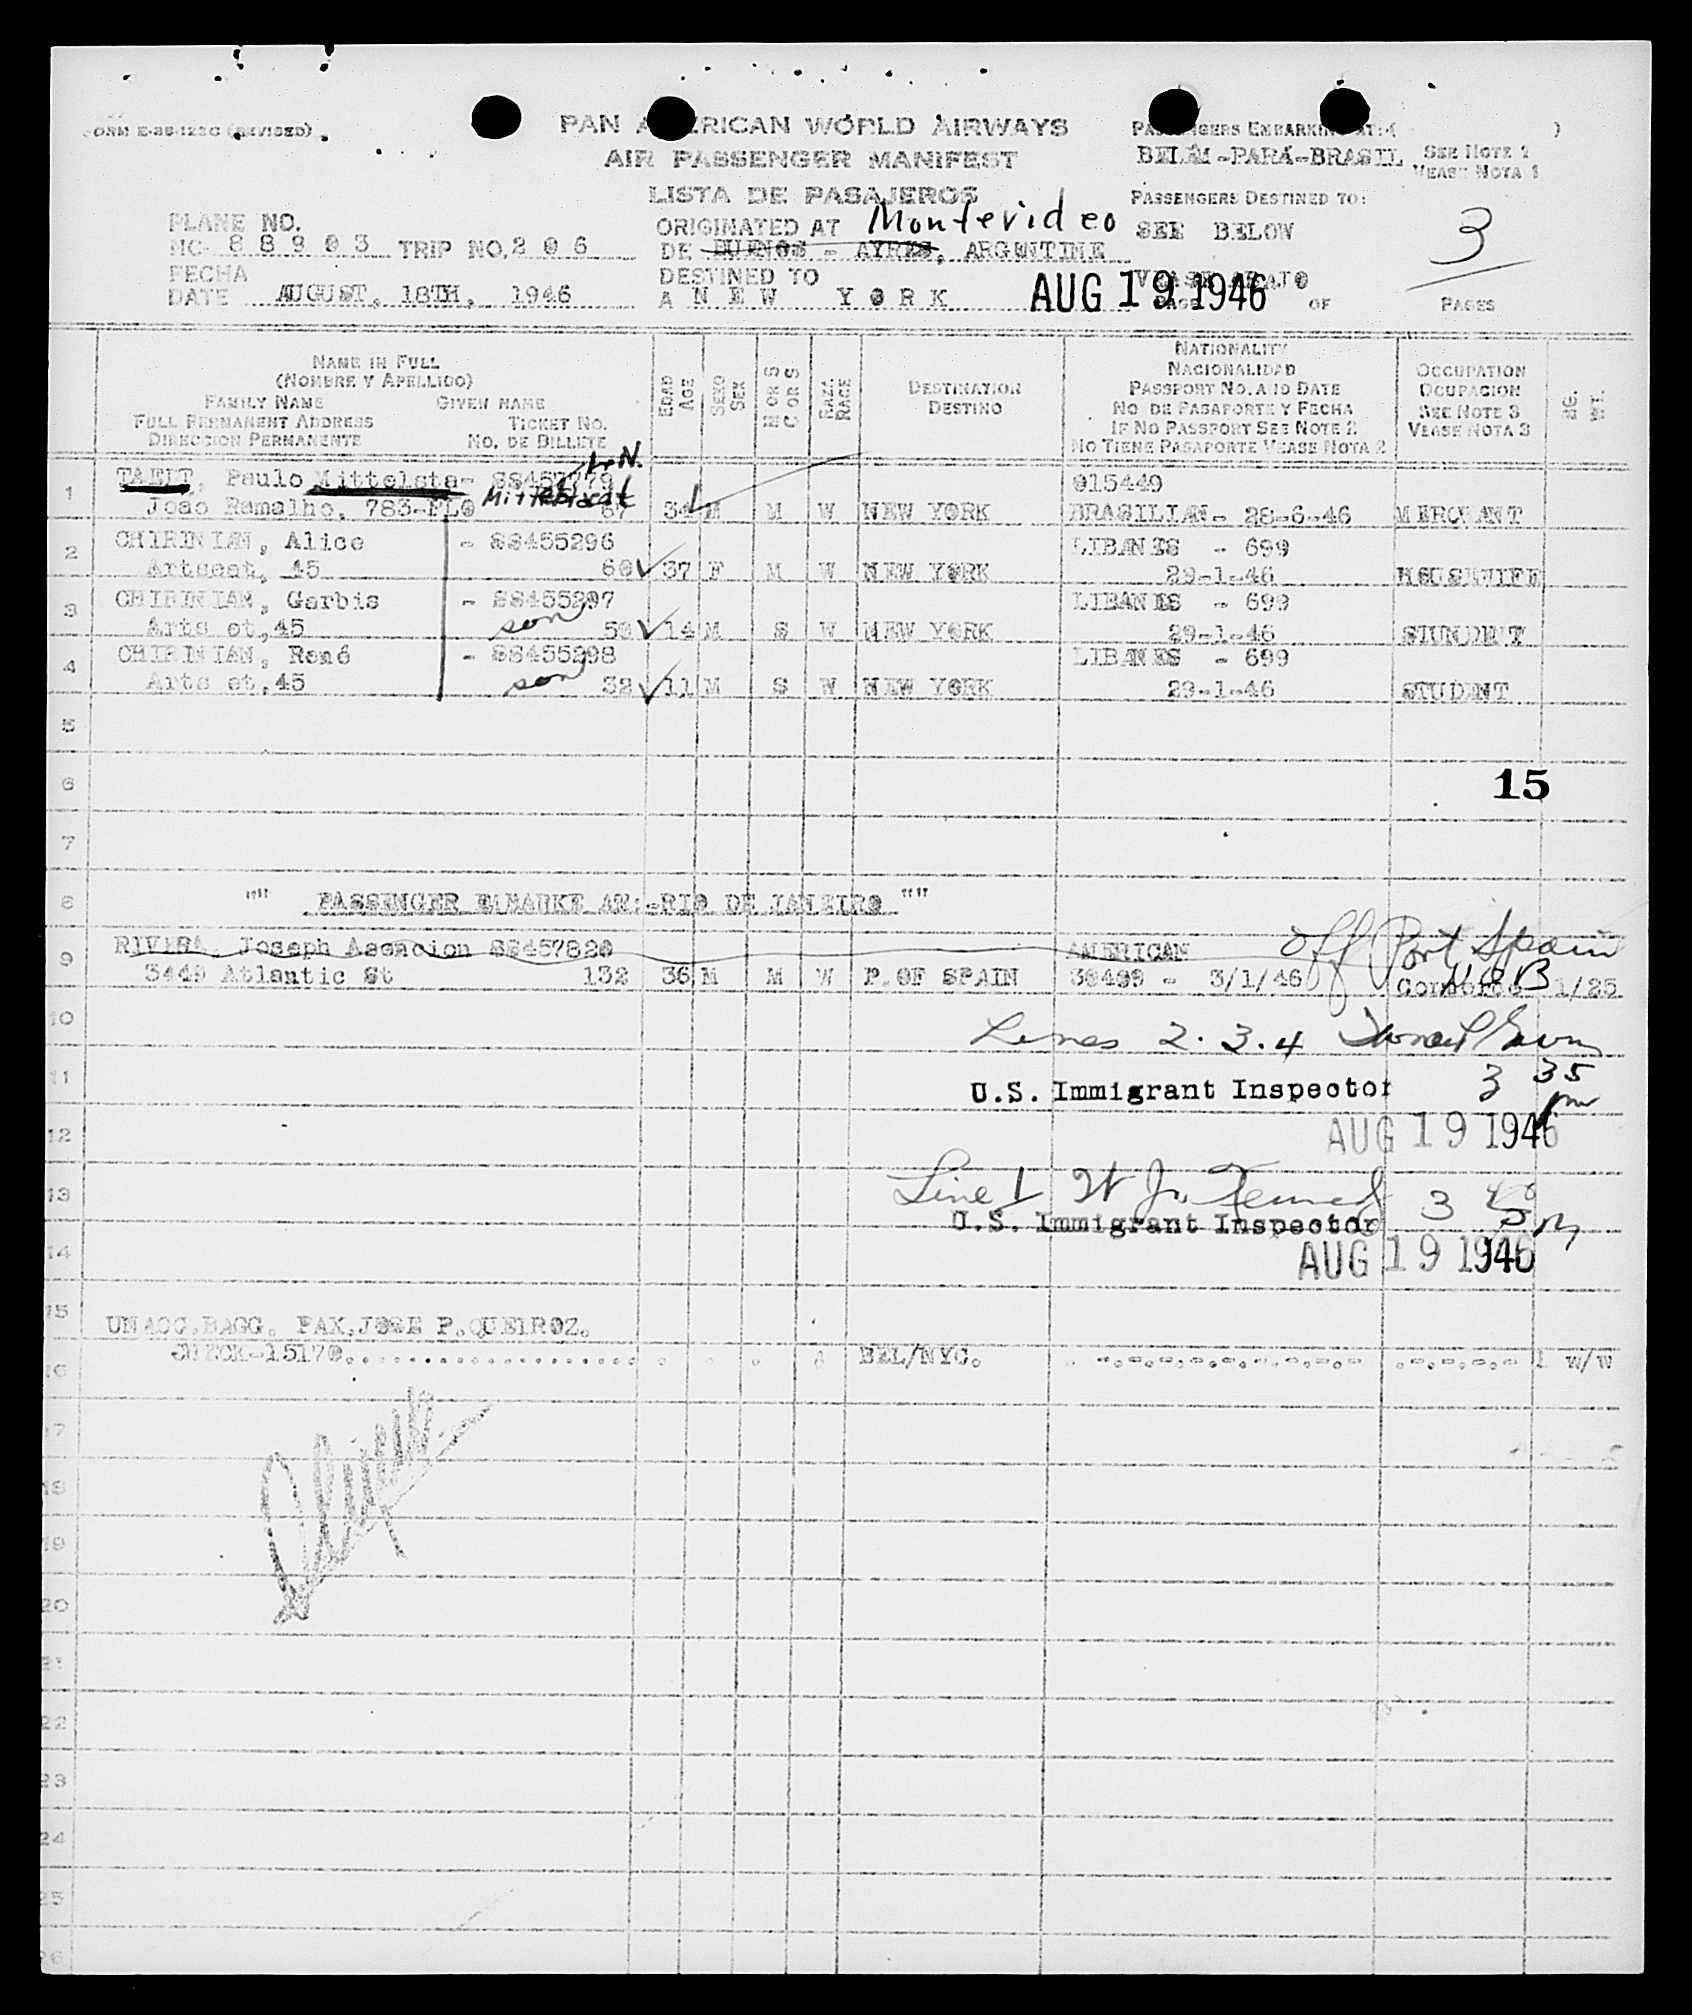 FORM E-38-122C (REVISED)
PAN AMERICAN WORLD AIRWAYS
AIR PASSENGER MANIFEST
LISTA DE PASAJEROS
PASSENGERS EMBARKING AT:( )
BELÉM-PARÁ-BRASIL SEE NOTE 1
VEASE NOTA 1
PASSENGERS DESTINED TO:
SEE BELOW
3
VEASE ABAJO
PAGE OF PAGES
PLANE NO.
NC- 88903 TRIP NO. 206
FECHA
DATE AUGUST, 18TH, 1946
ORIGINATED AT Montevideo
DE BUENOS - AYRES, ARGENTINE
DESTINED TO
A NEW YORK
AUG 19 1946
NAME IN FULL
(NOMBRE Y APELLIDO)
FAMILY NAME GIVEN NAME
FULL PERMANENT ADDRESS TICKET NO.
DIRECCION PERMANENTE NO. DE BILLETE
EDAD AGE
SEXO SEX
M OR S C OR S
RAZA RACE
DESTINATION
DESTINO
NATIONALITY
NACIONALIDAD
PASSPORT NO. AND DATE
NO DE PASAPORTE Y FECHA
IF NO PASSPORT SEE NOTE 2
NO TIENE PASAPORTE VEASE NOTA 2
OCCUPATION
OCUPACION
SEE NOTE 3
VEASE NOTA 3
BG. WT.
1 TAEIT, Paulo Mittelsta- SS457779 015449
João Ramalho, 783-PLO 67 34 M M W NEW YORK BRASILIAN- 28-6-46 MERCHANT
2 CHIRINIAN, Alice - SS455296 LIBANES - 699
Artsest, 45 60 37 F M W NEW YORK 29-1-46 HOUSEWIFE
3 CHIRINIAN, Garbis - SS455297 LIBANES - 699
Arts et,45 son 50 14 M S W NEW YORK 29-1-46 STUNDENT
4 CHIRINIAN, René - SS455298 LIBANES - 699
Arts et,45 son 32 11 M S W NEW YORK 29-1-46 STUDENT
5
6
15
7
8 "" PASSENGER EMBARKE AT:-RIO DE JANEIRO ""
9 RIVERA, Joseph Ascncion SS457820 AMERICAN Off Port Spain
3449 Atlantic St 132 36 M M W P.OF SPAIN 30409 - 3/1/46 Commerce 1/25
10
Lines 2. 3. 4
11 U.S. Immigrant Inspector 3 35 pm
12 AUG 19 1946
13 Line 1
U.S. Immigrant Inspector
14 AUG 19 1946
15 UNACC.BAGG. PAX.JOSE P.QUEIROZ.
16 CHECK-15170. BEL/NYC. 1 w/w
17
18
19
20
21
22
23
24
25
26